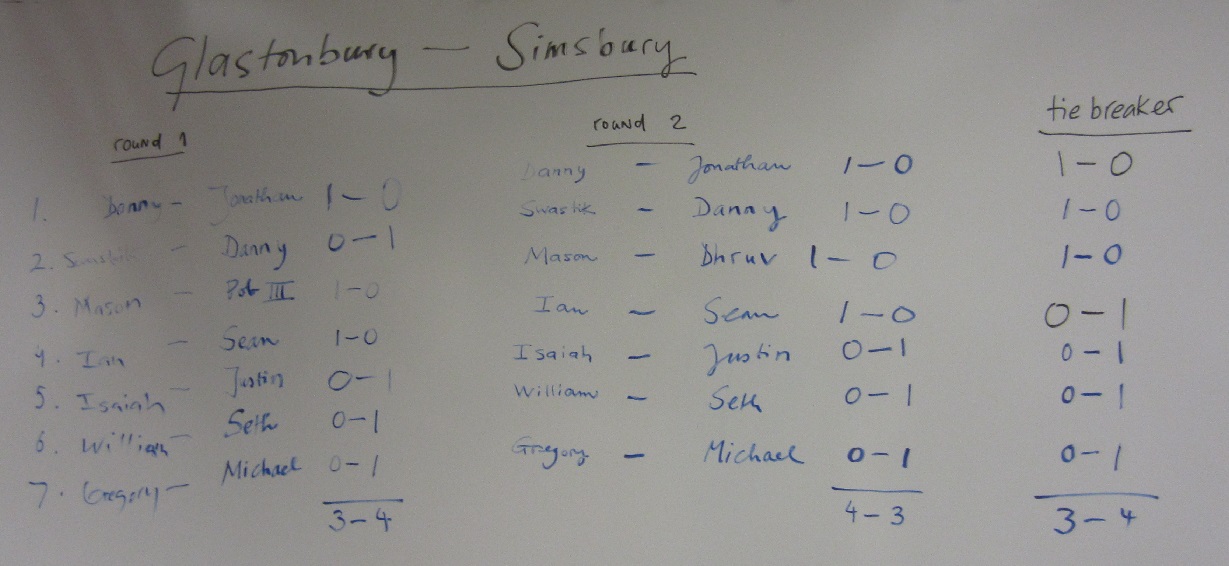 Glastonbury — Simsbury
round 1
1. Danny – Jonathan 1–0
2. – Danny 0–1
3. Mason – III 1–0
4. Ian – Sean 1–0
5. Isaiah – Justin 0–1
6. William – Seth 0–1
7. Gregory – Michael 0–1
3–4
round 2
Danny – Jonathan 1–0
Swastik – Danny 1–0
Mason – Dhruv 1–0
Ian – Sean 1–0
Isaiah – Justin 0–1
William – Seth 0–1
Gregory – Michael 0–1
4–3
tie breaker
1–0
1–0
1–0
0–1
0–1
0–1
0–1
3–4